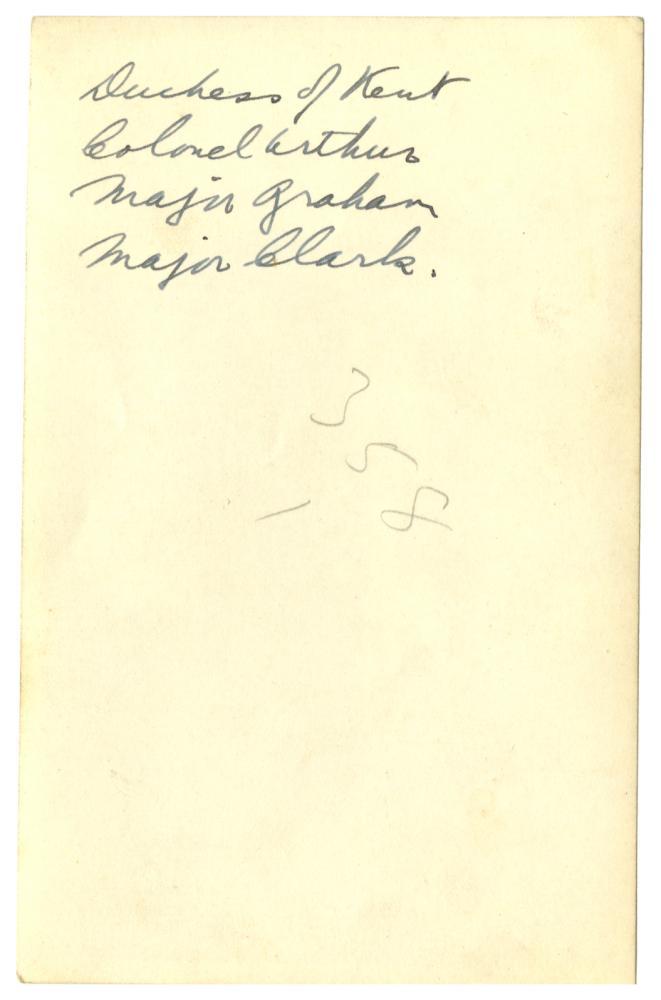 Duchess of Kent
Colonel Arthur
Major Graham
Major Clark.
3
5
8